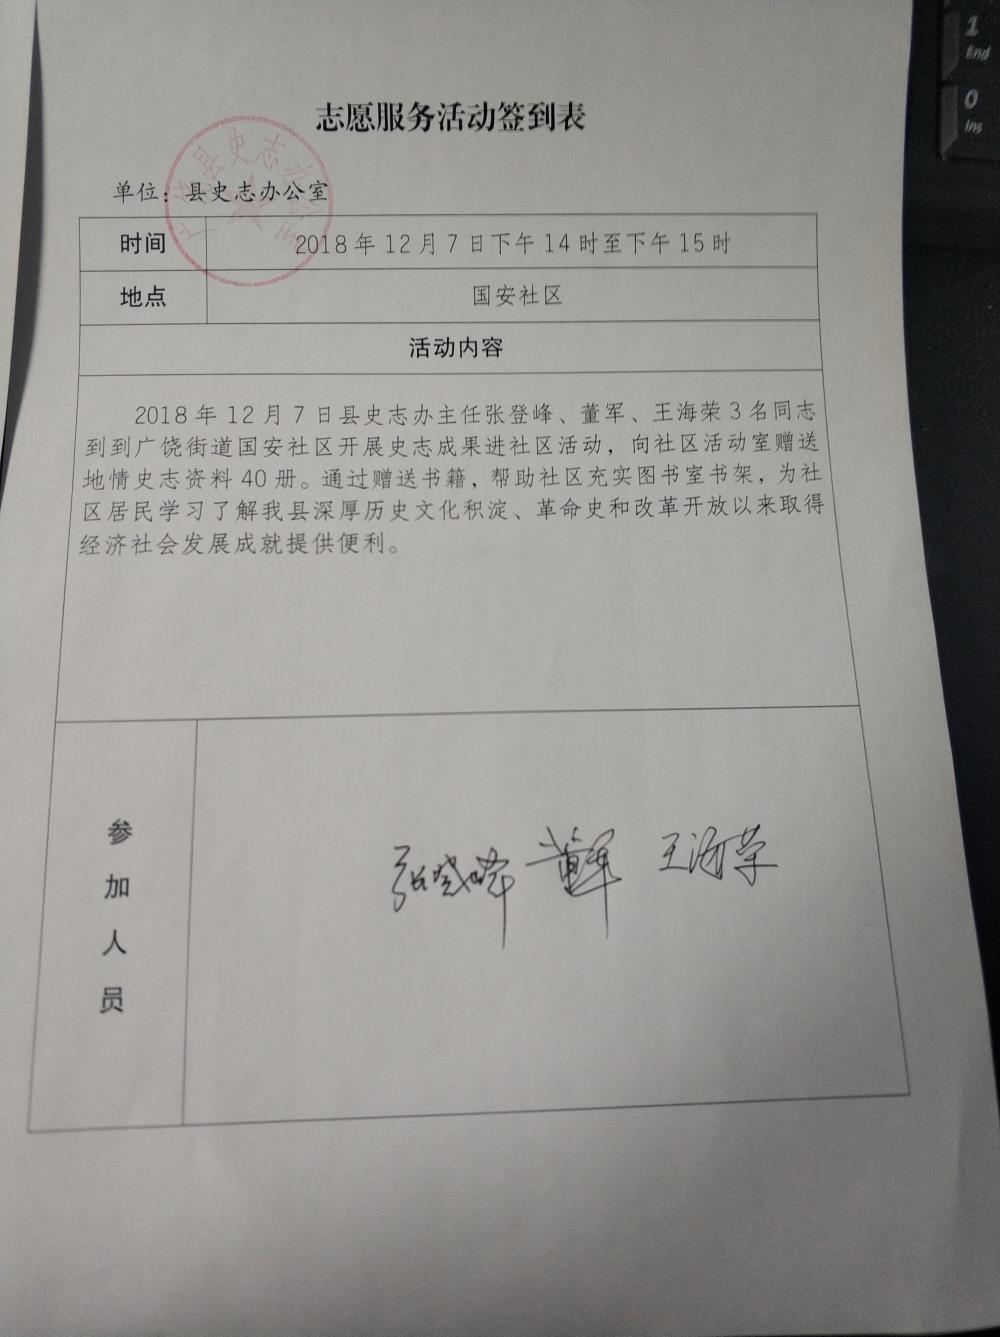 志愿服务活动签到表
单位：县史志办公室
时间
2018年12月7日下午14时至下午15时
地点
国安社区
活动内容
2018年12月7日县史志办主任张登峰、董军、王海荣3名同志
到到广饶街道国安社区开展史志成果进社区活动，向社区活动室赠送
地情史志资料40册。通过赠送书籍，帮助社区充实图书室书架，为社
区居民学习了解我县深厚历史文化积淀、革命史和改革开放以来取得
经济社会发展成就提供便利。
参加人员
董军 王海荣
县史志办
1
End
0
Ins